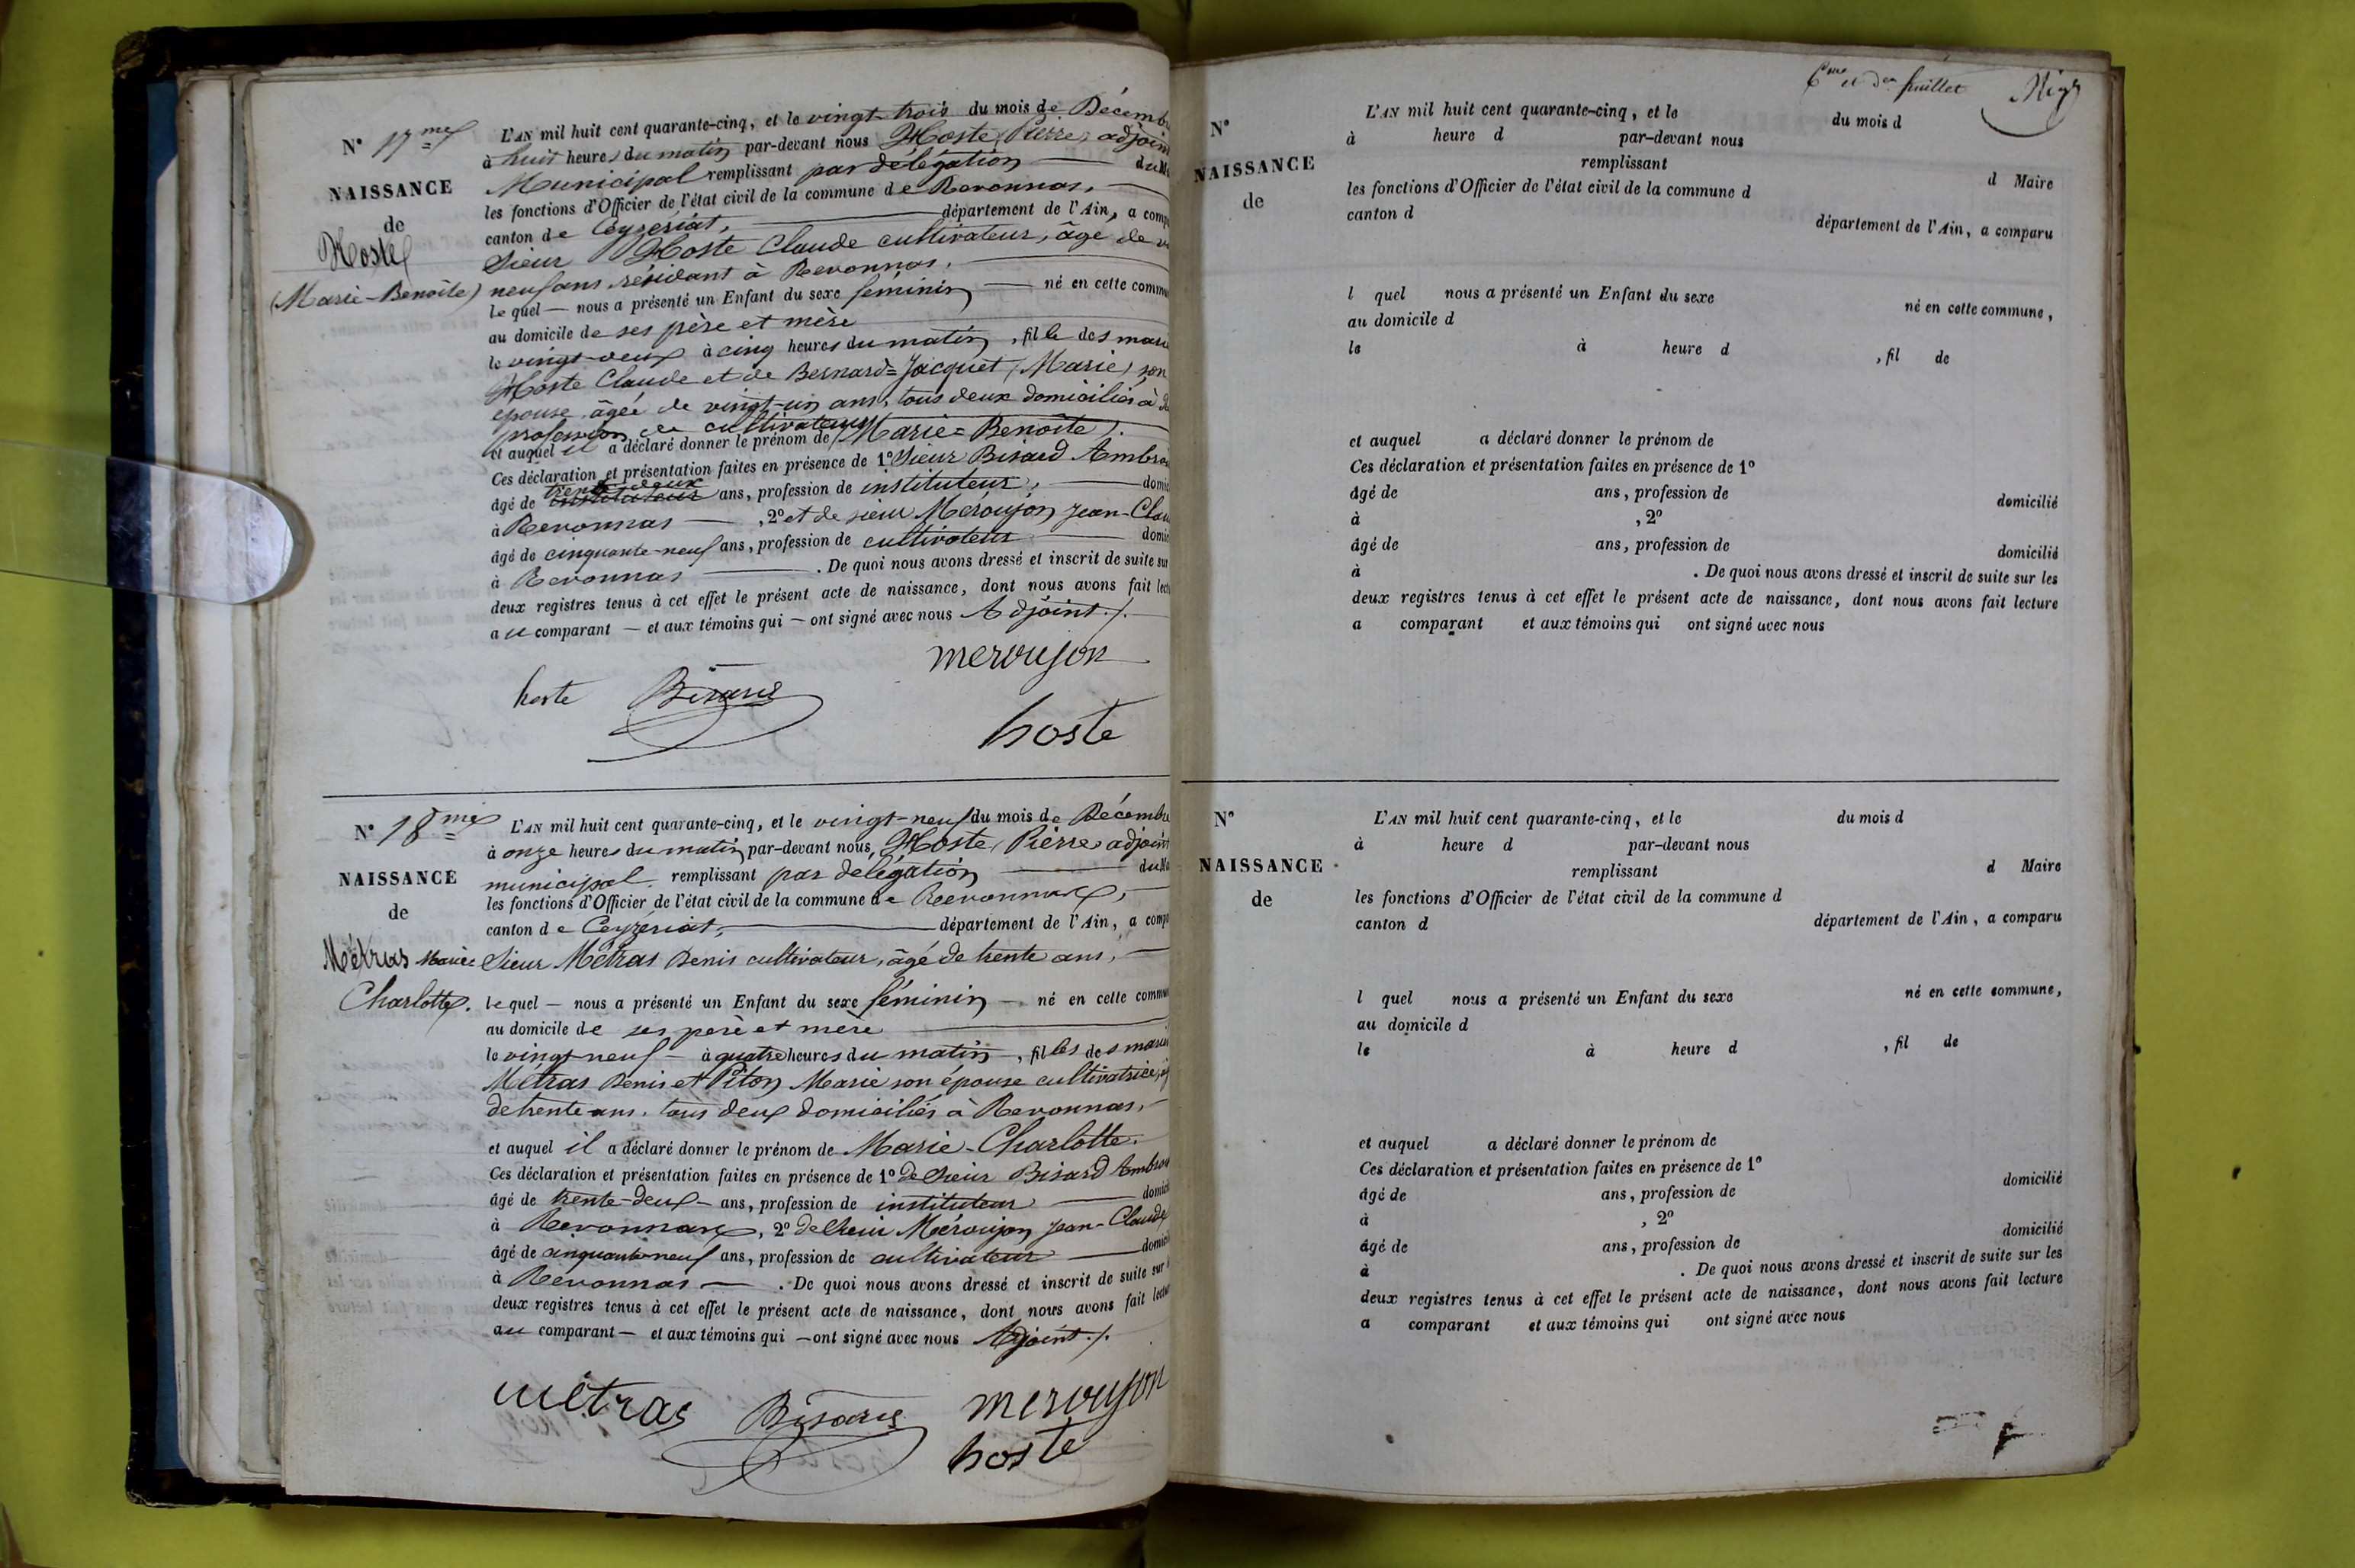 N° 17me
NAISSANCE
de
Hoste
(Marie-Benoite)
L'AN mil huit cent quarante-cinq, et le vingt-trois du mois de Décemb
à huit heures du matin par-devant nous Hoste, Pierre, adjoin
Municipal remplissant par délégation du
les fonctions d'Officier de l'état civil de la commune de Revonnas,
canton de Ceyzériat, département de l'Ain, a comp
Sieur Hoste Claude cultivateur, âgé de
neuf ans résidant à Revonnas,
lequel — nous a présenté un Enfant du sexe féminin — né en cette commu
au domicile de ses père et mère
le vingt-deux à cinq heures du matin, fille des mari
Hoste Claude et de Bernard=Jacquet (Marie) son
épouse âgée de vingt-un ans, tous deux domiciliés à
profession de cultivateurs
et auquel il a déclaré donner le prénom de (Marie=Benoite).
Ces déclaration et présentation faites en présence de 1° Sieur Bisard Ambro
âgé de trente deux ans, profession de instituteur, — domic
à Revonnas — , 2° et de sieur Méroujon Jean-Clau
âgé de cinquante-neuf ans, profession de cultivateur — domic
à Revonnas — . De quoi nous avons dressé et inscrit de suite sur
deux registres tenus à cet effet le présent acte de naissance, dont nous avons fait lect
au comparant — et aux témoins qui — ont signé avec nous Adjoint ./.
meroujon
hoste Bisard
hoste
N° 18me
NAISSANCE
de
Métras Marie
Charlotte.
L'AN mil huit cent quarante-cinq, et le vingt-neuf du mois de Décembre
à onze heures du matin par-devant nous, Hoste, Pierre adjoint
municipal remplissant par délégation — du
les fonctions d'Officier de l'état civil de la commune de Revonnas,
canton de Ceyzériat, département de l'Ain, a comp
Sieur Métras Denis cultivateur, âgé de trente ans,
lequel — nous a présenté un Enfant du sexe féminin — né en cette commun
au domicile de ses père et mère
le vingt-neuf — à quatre heures du matin —, filles des mari
Métras Denis et Piton Marie son épouse cultivatrice,
de trente ans, tous deux domiciliés à Revonnas,
et auquel il a déclaré donner le prénom de Marie-Charlotte.
Ces déclaration et présentation faites en présence de 1° de Sieur Bisard Ambroi
âgé de trente-deux — ans, profession de instituteur — domicil
à Revonnas, 2° de Sieur Méroujon Jean-Claude
âgé de cinquante neuf ans, profession de cultivateur — domici
à Revonnas — . De quoi nous avons dressé et inscrit de suite sur
deux registres tenus à cet effet le présent acte de naissance, dont nous avons fait lectu
au comparant — et aux témoins qui — ont signé avec nous Adjoint ./.
métras Bisard meroujon
hoste
6me et der feuillet
N°
NAISSANCE
de
L'AN mil huit cent quarante-cinq, et le du mois d
à heure d par-devant nous
remplissant d Maire
les fonctions d'Officier de l'état civil de la commune d
canton d département de l'Ain, a comparu
l quel nous a présenté un Enfant du sexe né en cette commune,
au domicile d
le à heure d , fil de
et auquel a déclaré donner le prénom de
Ces déclaration et présentation faites en présence de 1°
âgé de ans, profession de domicilié
à , 2°
âgé de ans, profession de domicilié
à . De quoi nous avons dressé et inscrit de suite sur les
deux registres tenus à cet effet le présent acte de naissance, dont nous avons fait lecture
a comparant et aux témoins qui ont signé avec nous
N°
NAISSANCE
de
L'AN mil huit cent quarante-cinq, et le du mois d
à heure d par-devant nous
remplissant d Maire
les fonctions d'Officier de l'état civil de la commune d
canton d département de l'Ain, a comparu
l quel nous a présenté un Enfant du sexe né en cette commune,
au domicile d
le à heure d , fil de
et auquel a déclaré donner le prénom de
Ces déclaration et présentation faites en présence de 1°
âgé de ans, profession de domicilié
à , 2°
âgé de ans, profession de domicilié
à . De quoi nous avons dressé et inscrit de suite sur les
deux registres tenus à cet effet le présent acte de naissance, dont nous avons fait lecture
a comparant et aux témoins qui ont signé avec nous